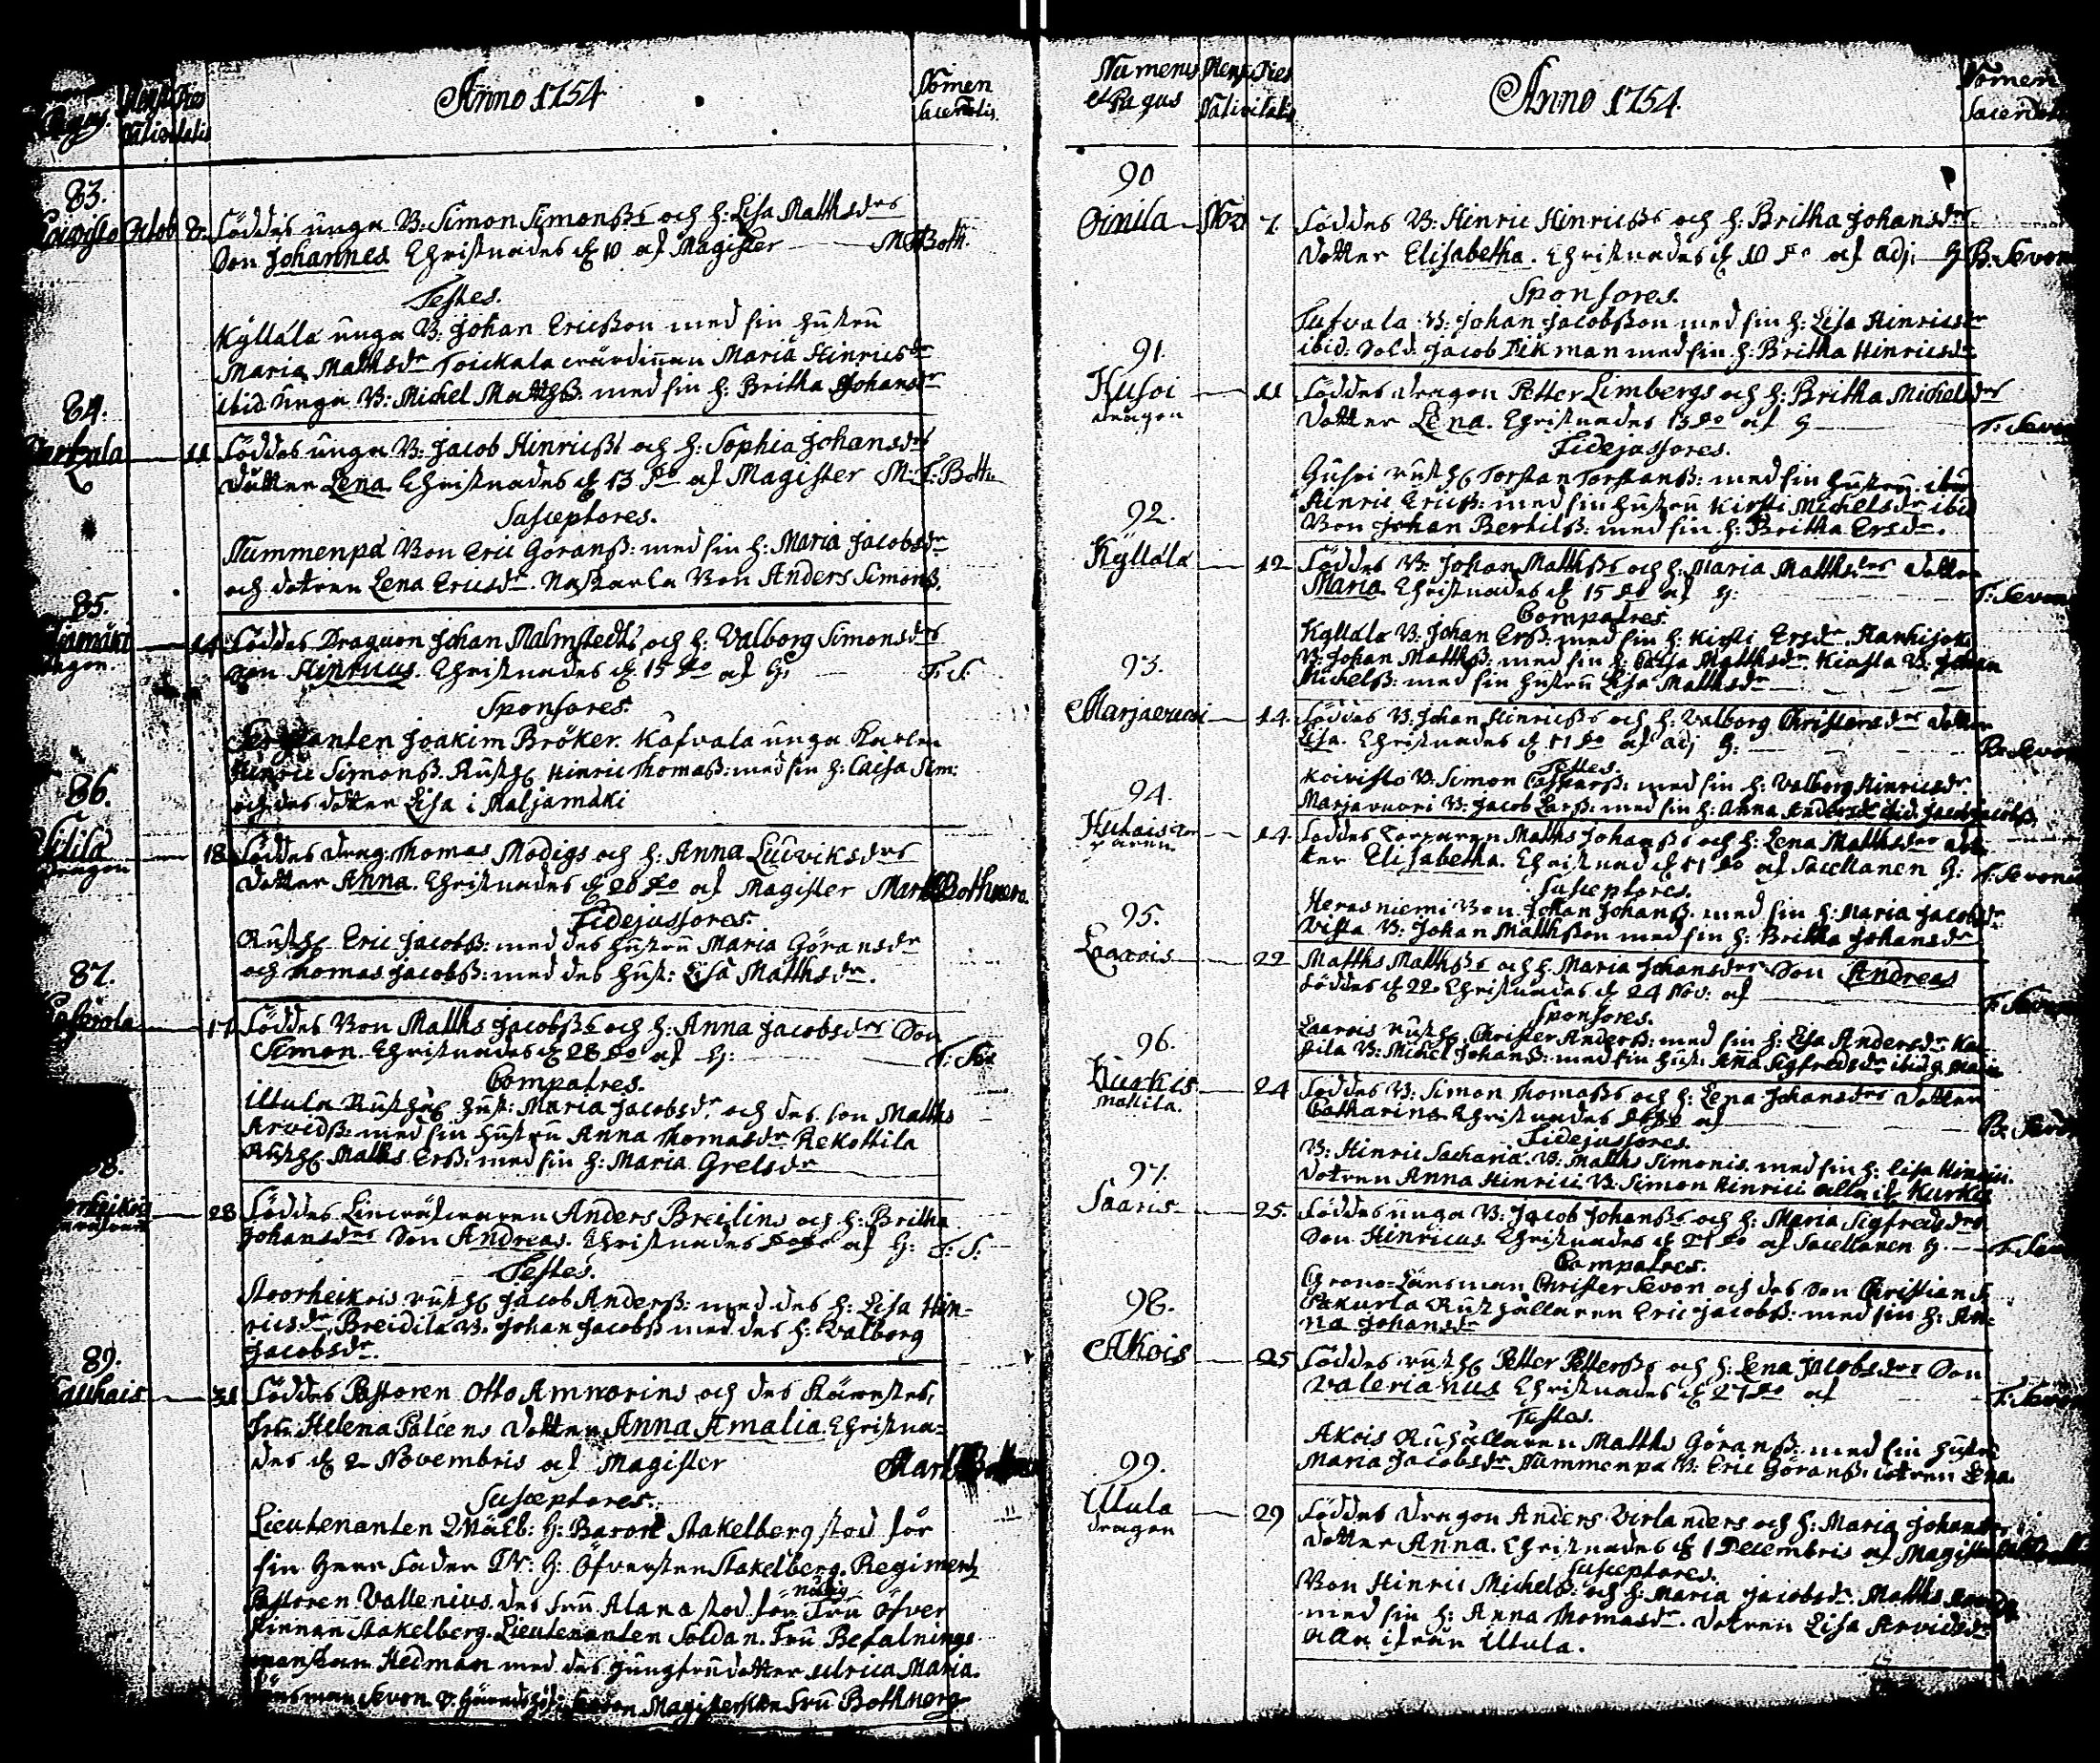 Anno 1754
Nomen
Sacerdotis.
Pagus. Mens. Dies
Nativitatis
83.
Coivisto Octob 8. Föddes unga B: Simon Simonßs och h: Lisa Mathsdrs
Son Johannes Christnades d 10 af Magister M Both.
Testes.
Kyllälä unga B: Johan Ericsson med sin hustru
Maria Mathsdr Toickala wärdinnan Maria Hinricsdr
ibid unga B: Michel Matthß. med sin h: Britha Johansdr
84.
11 Föddes unga B: Jacob Hinricßs och h: Sophia Johansdrs
dotter Lena Christnades d 13 do af Magister M: T: Both.
Susceptores.
Nummenpä Bon Eric Göranß: med sin h: Maria Jacobsdr
och dotren Lena Ericsdr. Bon Anders Simonß.
85.
14 Föddes Dragon Johan Malmstedts och h: Valborg Simonsdrs
Son Hinricus. Christnades d. 15 do af H: F: S:
Sponsores.
Sergeanten Joakim Bröker. Kafvala unga Karlen
Hinric Simonß. Rusth Hinric Thomaß: med sin h: Caisa Sim:
och des dotter Lisa i Maljamäki
86.
dragon
18 Föddes drag. Thomas Modigs och h: Anna Ludviksdrs
dotter Anna. Christnades d 20 do af Magister Mart Bothnero.
Fidejussores.
Rusth Eric Jacobß: med des hustru Maria Göransdr
och Thomas Jacobß: med des hust: Lisa Matthsdr.
87.
17 Föddes Bon Matths Jacobßs och h: Anna Jacobsdrs Son
Simon. Christnades d 28 do af H:
Compatres.
Illula Rusth hust: Maria Jacobsdr och des son Matths
Arvidß: med sin hustru Anna Thomasdr Rekottila
Rusth Matths Erß: med sin h: Maria Grelsdr
28 Föddes Anders Breilins och h: Britha
Johansdrs Son Andreas. Christnades do do af H: F: S:
Testes.
Stoorheikois rusth Jacob Anderß: med des h: Lisa Hin-
ricsdr, Breidila B. Johan Jacobß med des h: Valborg
Jacobsdr.
89.
31 Föddes Pastoren Otto Amnorins och des Käresta,
Fru Helena Palcens dotter Anna Amalia. Christna-
des d 2 Novembris af Magister
Susceptores.
Lieutenanten H: Baron Stakelberg stod för
sin Herr Fader H: Öfversten Stakelberg. Regiments
Pastoren Vallenius. des fru Alana stod för nådig Fru Öfver
stinnan Stakelberg. Lieutenanten Soldan. Fru Befalnings
manskan Hedman med des Jungfrudotter Ulrica Maria.
Länsman Sevon Magisterskan Fru Bothnerg
Numerus Mens. Dies
et Pagus Nativitatis
Anno 1754.
Nomen
Sacerdotis
90
Oinila Nov 7. Föddes B: Hinric Hinricßs och h: Britha Johansdrs
dotter Elisabetha. Christnades d 10 do af adj: H B: Sevon
Sponsores.
Tufvala B: Johan Jacobßon med sin h: Lisa Hinricsdr
ibid: Sold. Jacob Dikman med sin h: Britha Hinricsdr
91.
Husoi 11 Föddes dragon Petter Limbergs och h: Britha Michelsdrs
dragon dotter Lena. Christnades 13 do af H F: Sevon
Fidejussores.
Husoi rusth Torstan Torstanß: med sin hustru. ibid
Hinric Ericß: med sin hustru Kirsti Michelsdr ibid
Bon Johan Bertilß: med sin h: Britha Ersdr.
92.
Kyllälä 12 Föddes B: Johan Matthßs och h: Maria Matthsdrs dotter
Maria. Christnades d 15 do af H: F: Sevon
Compatres.
Kyllälä B: Johan Erß: med sin h: Kirsti Ersdr. Hanhijoki
B: Johan Matthß: med sin h: Caisa Matthsdr. B: Johan
Michelß: med sin hustru Lisa Matthsdr
93.
Marjavuori 14 Föddes B: Johan Hinricßs och h: Valborg Christersdrs dotter
Lisa. Christnades d 17 do af adj H: B: Sevon
Testes.
Koivisto B: Simon Casparß: med sin h: Valborg Hinricsdr.
Marjavuori B: Jacob Larß: med sin h: Anna Andersdr ibid. Jacob Jacobß.
94.
14. Föddes Torparen Matths Johanßs och h: Lena Matthsdrs dot-
ter Elisabetha. Christnad d 17 do af Sacellanen H: F: Sevon
Susceptores.
Herasniemi Bon Johan Johanß. med sin h: Maria Jacobsdr
Vista B: Johan Matthßon med sin h: Britha Johansdr
95.
Laarois 22 Matths Matthßs och h: Maria Johansdrs Son Andreas
Föddes d 22. Christnades d 24 Nov: af F: Sevon
Sponsores.
Laarois rusth Christer Anderß: med sin h: Lisa Andersdr Kat-
tila B: Michel Johanß: med sin hust: Anna Sigfredsdr ibid
96.
Kurkis 24 Föddes B: Simon Thomaßs och h: Lena Johansdrs dotter
Mattila. Catharina Christnades do do af B: Sevon
Fidejussores.
B: Hinric Sachariæ. B: Matths Simonis. med sin h: Lisa Hinrici.
dotren Anna Hinrici B: Simon Hinrici alla if. Kurkis
97.
Saaris 25. Föddes unga B: Jacob Johanßs och h: Maria Sigfredsdrs
Son Hinricus. Christnades d 27 do af Sacellanen H F: Sevon
Compatres.
Crono-Länsman Christer Sevon och des Son Christian.
Pakurla Rusthållaren Eric Jacobß: med sin h: An-
na Johansdr
98.
Akois 25 Föddes rusth Petter Petterßs och h: Lena Jacobsdrs Son
Valerianus Christnades d 27 do af F: Sevon
Testes.
Akois Rushållaren Matths Göranß: med sin hustru
Maria Jacobsdr Nummenpä B: Eric Göranß. dotren Lena.
99.
Ullula 29 Föddes dragon Anders Virlanders och h: Maria Johansdrs
dragon dotter Anna. Christnades d 1 Decembris af Magister
Susceptores.
Bon Hinric Michelß: och h: Maria Jacobsdr. Matths
med sin h: Anna Thomasdr. dotren Lisa Arvidsdr
alla ifrån Ullula.